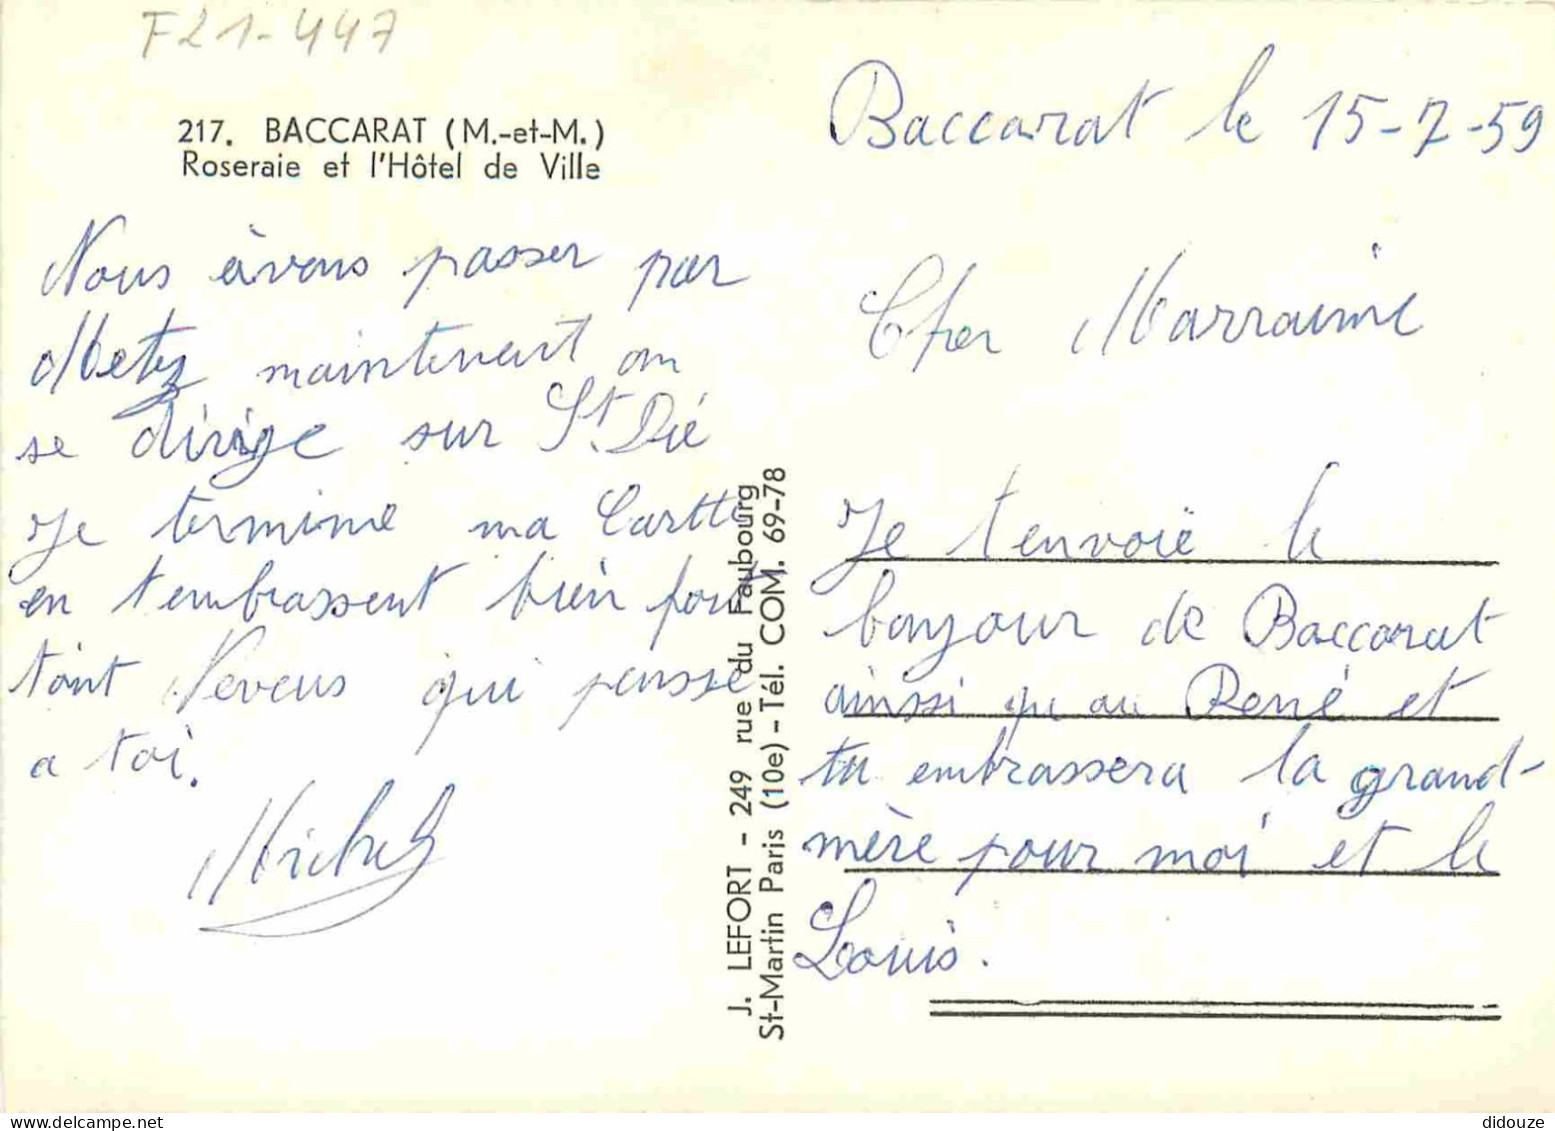 F21-447
217. BACCARAT (M.-et-M.)
Roseraie et l'Hôtel de Ville
Baccarat le 15-7-59
Cher Marraine
Je t'envoie le
bonjour de Baccarat
ainssi qu au René et
tu embrassera la grand-
mère pour moi et le
Louis.
Nous avons passer par
Metz maintenent on
se dirige sur St. Dié
Je termine ma Cartte
en t'embrassent bien fort
tont Neveus qui pensse
a toi.
Michel
J. LEFORT - 249 rue du Faubourg
St-Martin Paris (10e) - Tél. COM. 69-78
delcampe.net
didouze